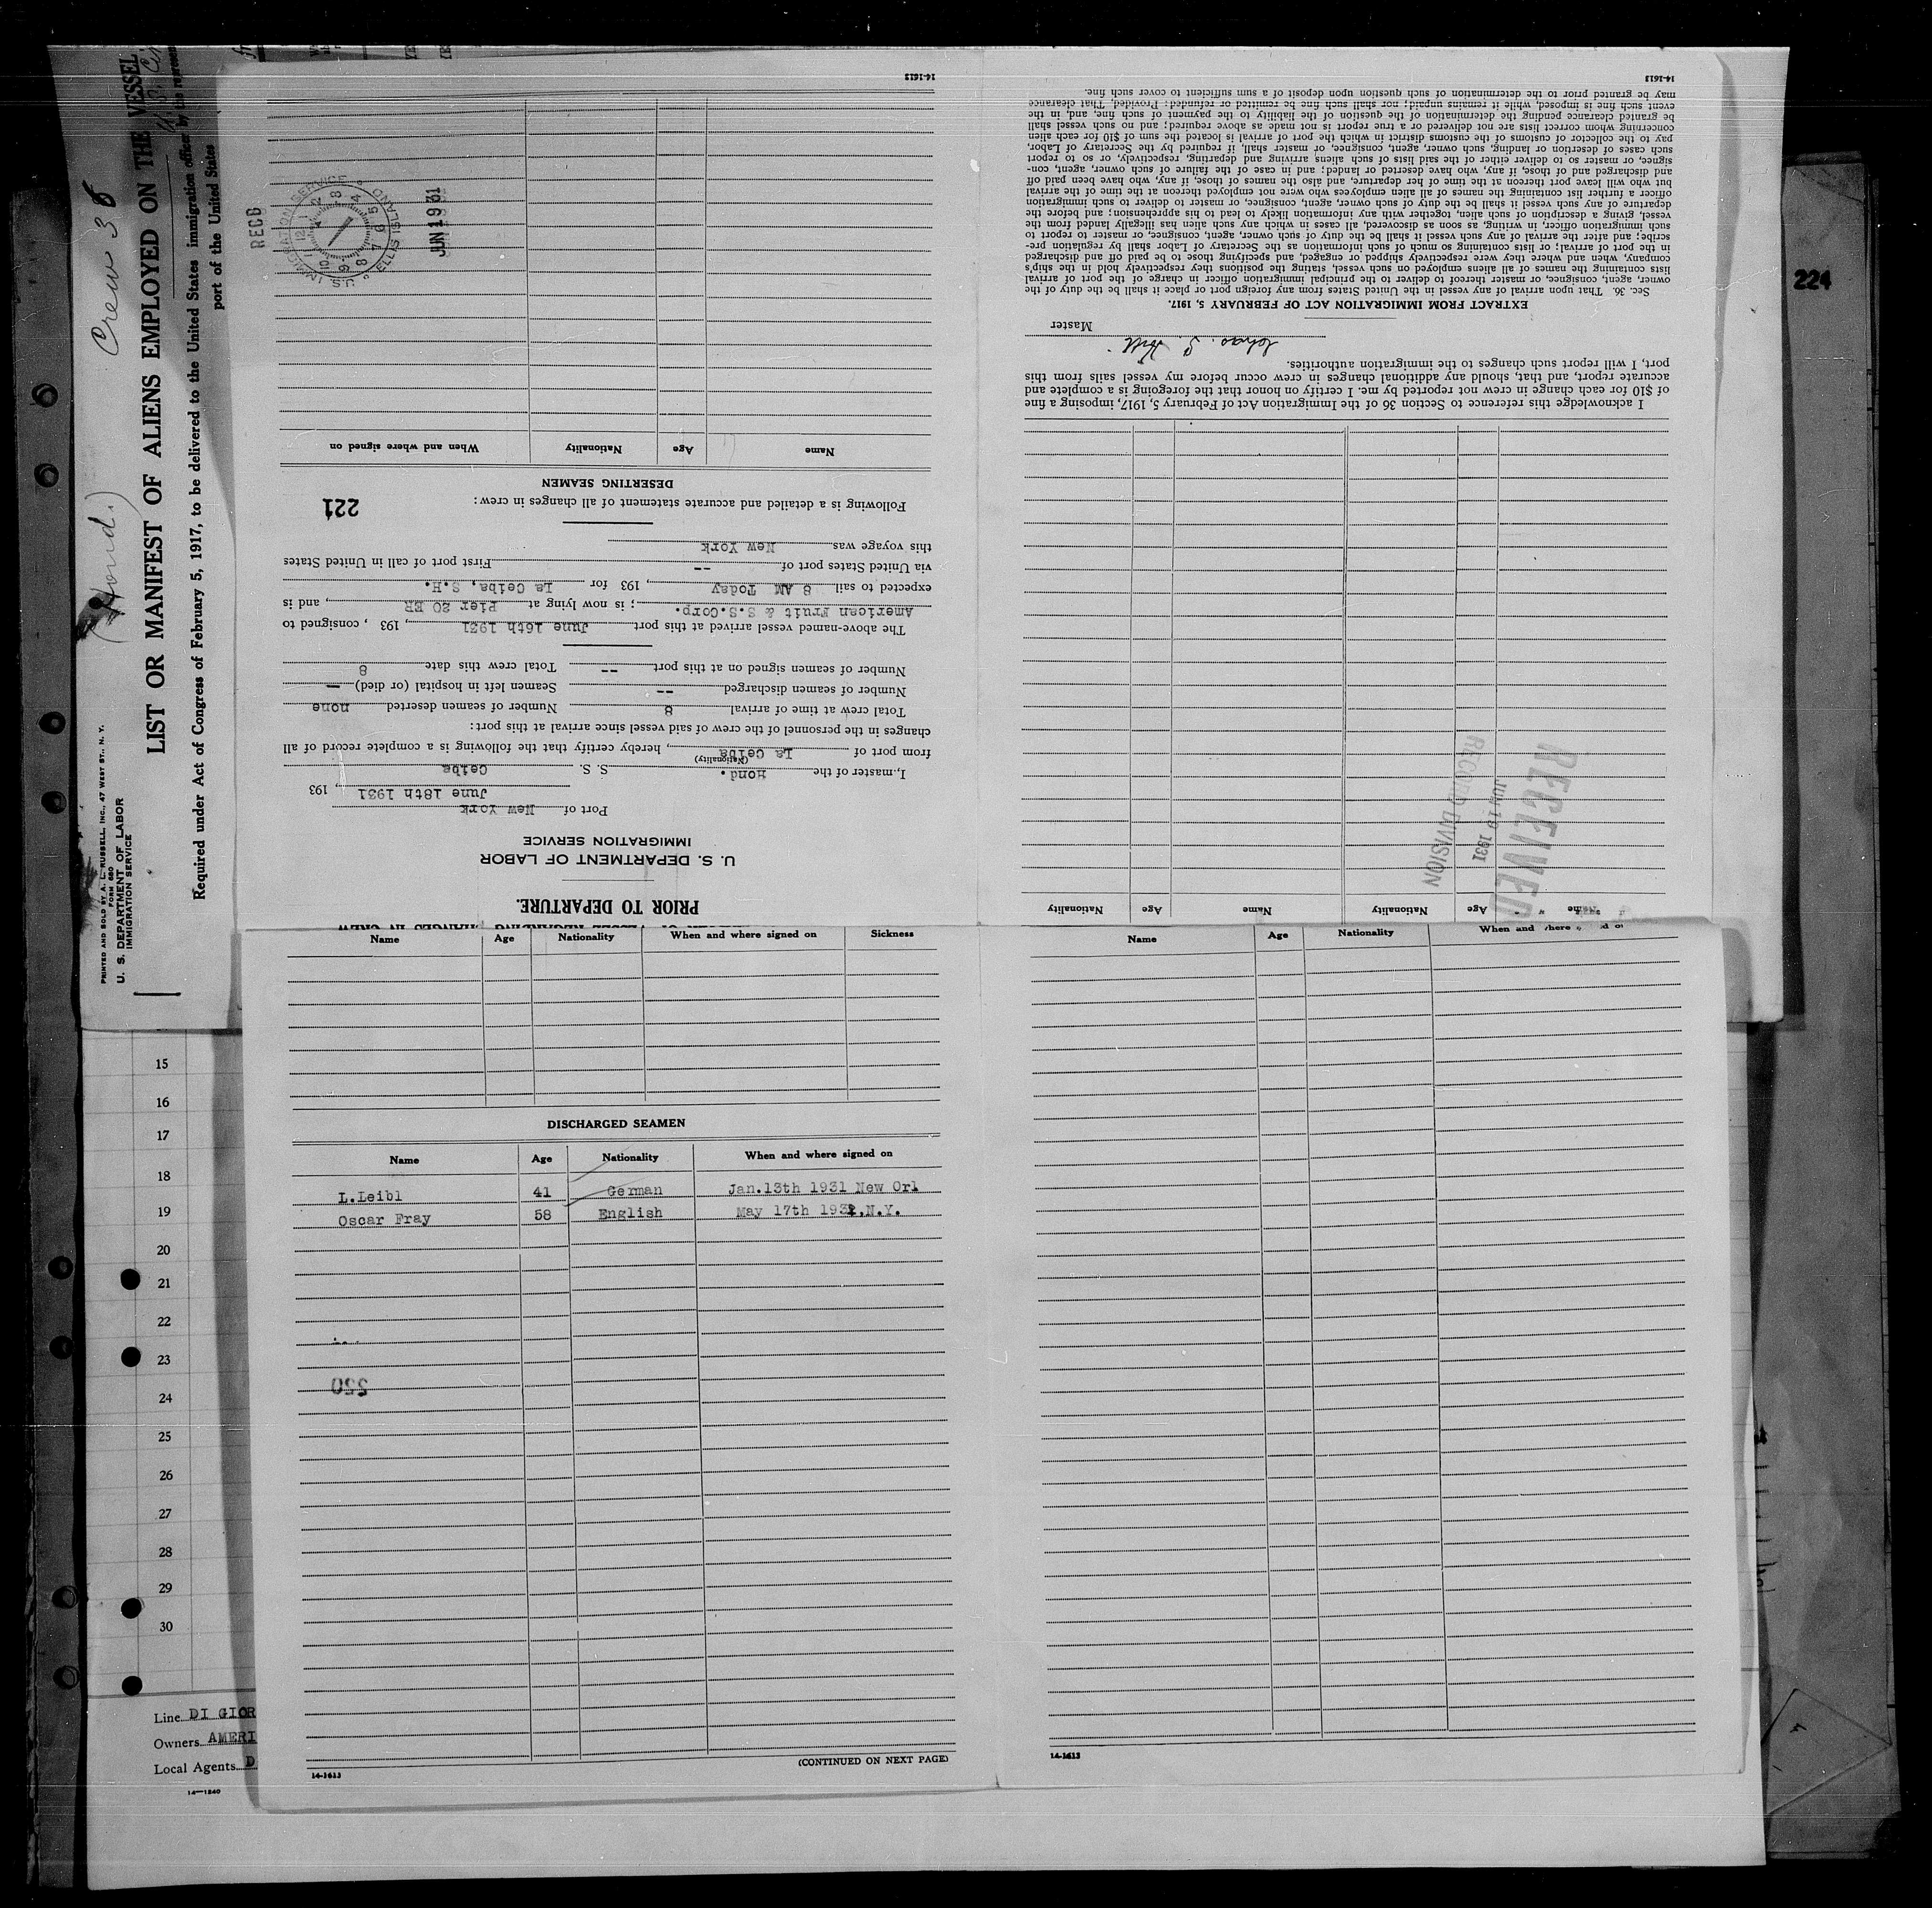 224
PRINTED AND SOLD BY A. L. RUSSELL, INC., 47 WEST ST., N. Y.
FORM 680
U. S. DEPARTMENT OF LABOR
IMMIGRATION SERVICE
(Hond.)
Crew 38
LIST OR MANIFEST OF ALIENS EMPLOYED ON THE VESSEL
Required under Act of Congress of February 5, 1917, to be delivered to the United States immigration officer by the represen
port of the United States
PRIOR TO DEPARTURE.
U. S. DEPARTMENT OF LABOR
IMMIGRATION SERVICE
Port of New York
June 18th 1931, 193
I, master of the Hond. S. S. Ceiba
(Nationality)
from port of La Ceiba, hereby certify that the following is a complete record of all
changes in the personnel of the crew of said vessel since arrival at this port:
Total crew at time of arrival 8 Number of seamen deserted none
Number of seamen discharged -- Seamen left in hospital (or died) —
Number of seamen signed on at this port -- Total crew this date 8
The above-named vessel arrived at this port June 16th 1931, 193 , consigned to
American Fruit & S.S.Corp. ; is now lying at Pier 20 ER, and is
expected to sail 8 AM Today, 193 for La Ceiba, S.H.
via United States port of -- First port of call in United States
this voyage was New York
Following is a detailed and accurate statement of all changes in crew:
221
DESERTING SEAMEN
Name Age Nationality When and where signed on
RECD
U.S. IMMIGRATION SERVICE
ELLIS ISLAND
JUN 19 31
14-1613
Name Age Nationality When and where signed on Sickness
DISCHARGED SEAMEN
Name Age Nationality When and where signed on
L.Leibl 41 German Jan.13th 1931 New Orl
Oscar Fray 58 English May 17th 1931.N.Y.
350
(CONTINUED ON NEXT PAGE)
14-1613
Name Age Nationality When and
14-1613
Age Nationality Name Age Nationality
RECEIVED
JUN 19 1931
RECORD DIVISION
I acknowledge this reference to Section 36 of the Immigration Act of February 5, 1917, imposing a fine
of $10 for each change in crew not reported by me. I certify on honor that the foregoing is a complete and
accurate report, and that, should any additional changes in crew occur before my vessel sails from this
port, I will report such changes to the immigration authorities.
Master
EXTRACT FROM IMMIGRATION ACT OF FEBRUARY 5, 1917.
Sec. 36. That upon arrival of any vessel in the United States from any foreign port or place it shall be the duty of the
owner, agent, consignee, or master thereof to deliver to the principal immigration officer in charge of the port of arrival
lists containing the names of all aliens employed on such vessel, stating the positions they respectively hold in the ship's
company, when and where they were respectively shipped or engaged, and specifying those to be paid off and discharged
in the port of arrival; or lists containing so much of such information as the Secretary of Labor shall by regulation pre-
scribe; and after the arrival of any such vessel it shall be the duty of such owner, agent, consignee, or master to report to
such immigration officer, in writing, as soon as discovered, all cases in which any such alien has illegally landed from the
vessel, giving a description of such alien, together with any information likely to lead to his apprehension; and before the
departure of any such vessel it shall be the duty of such owner, agent, consignee, or master to deliver to such immigration
officer a further list containing the names of all alien employees who were not employed thereon at the time of the arrival
but who will leave port thereon at the time of her departure, and also the names of those, if any, who have been paid off
and discharged and of those, if any, who have deserted or landed; and in case of the failure of such owner, agent, con-
signee, or master so to deliver either of the said lists of such aliens arriving and departing, respectively, or so to report
such cases of desertion or landing, such owner, agent, consignee, or master, shall, if required by the Secretary of Labor,
pay to the collector of customs of the customs district in which the port of arrival is located the sum of $10 for each alien
concerning whom correct lists are not delivered or a true report is not made as above required; and no such vessel shall
be granted clearance pending the determination of the question of the liability to the payment of such fine, and, in the
event such fine is imposed, while it remains unpaid; nor shall such fine be remitted or refunded: Provided, That clearance
may be granted prior to the determination of such question upon deposit of a sum sufficient to cover such fine.
14-1613
15
16
17
18
19
20
21
22
23
24
25
26
27
28
29
30
Line DI GIOR
Owners AMERI
Local Agents D
14—1240